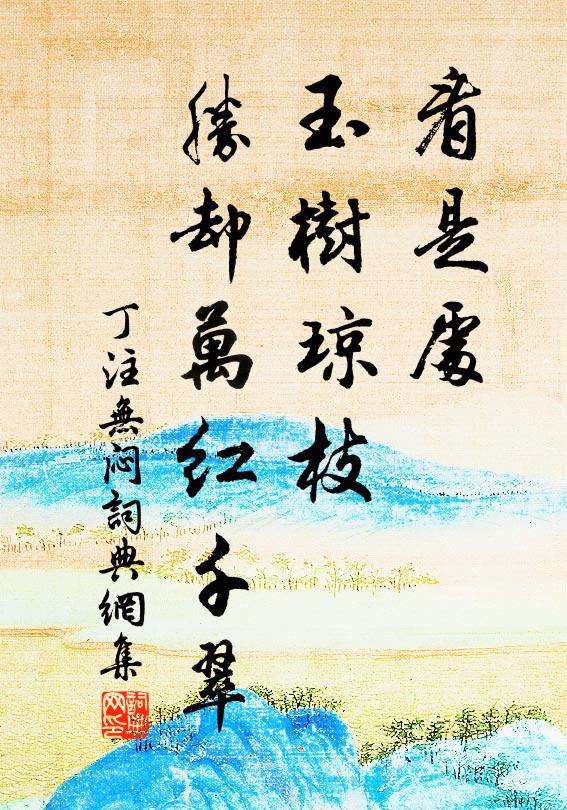 看是處
玉樹琼枝
勝却萬紅千翠
丁注無悶詞典網集